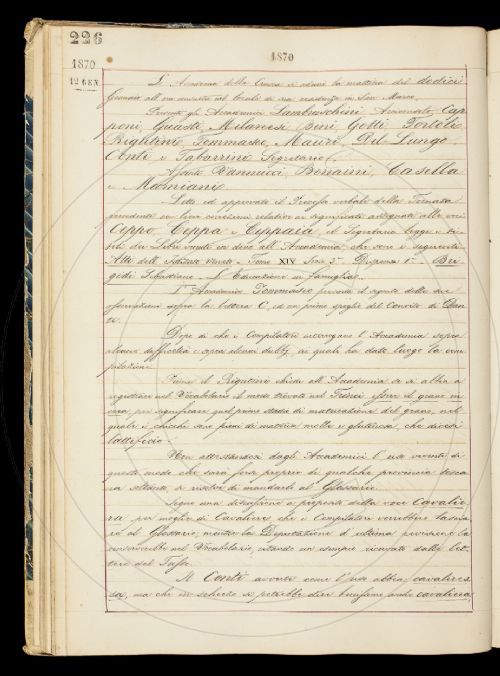 226
1870
1870
12 GEN.
L' Accademia della Crusca si adunò la mattina del dodici
Gennaio all' ora consueta nel locale di sua residenza in San Marco.
Presenti gli Accademici Lambruschini Arciconsolo, Cap-
poni, Guasti, Milanesi, Bini, Gotti, Tortoli,
Rigutini, Tommaseo, Mauri, Del Lungo,
Conti e Tabarrini Segretario.
Assenti Vannucci, Bonaini, Casella
e Mamiani.
Letto ed approvato il Processo verbale della Tornata
precedente con lievi correzioni relative ai significati assegnati alle voci
Ceppo, Ceppa e Ceppaia, il Segretario legge i ti-
toli dei Libri venuti in dono all' Accademia che sono i seguenti
Atti dell' Istituto Veneto - Tomo XIV Serie 3ª Dispensa 1ª - Bri-
gidi Sebastiano - L' Educazione in famiglia.
L' Accademico Tommaseo presenta il seguito delle sue
osservazioni sopra la lettera C, ed un primo spoglio del Convito di Dan-
te.
Dopo di che i Compilatori interrogano l' Accademia sopra
alcune difficoltà e sopra alcuni dubbj ai quali ha dato luogo la com-
pilazione.
Primo il Rigutini chiede all' Accademia se si abbia a
registrare nel Vocabolario il modo trovato nel Tesuci essere il grano in
cera, per significare quel primo stadio di maturazione del grano, nel
quale i chicchi son pieni di materia molle e glutinosa, che dicesi
lattificio.
Non attestandosi dagli Accademici l' uso vivente di
questo modo che sarà forse proprio di qualche provincia tosca-
na soltanto, si risolve di mandarlo al Glossario.
Segue una discussione a proposito della voce cavalie-
ra per moglie di Cavaliere, che i Compilatori vorrebbero lascia-
re al Glossario, mentre la Deputazione d' ultima revisione la
conserverebbe nel Vocabolario, citando un esempio ricavato dalle let-
tere del Tasso.
Il Conti avverte come l' uso abbia cavaliere-
sa, ma che in ischerzo si potrebbe dire benissimo anche cavaliera,